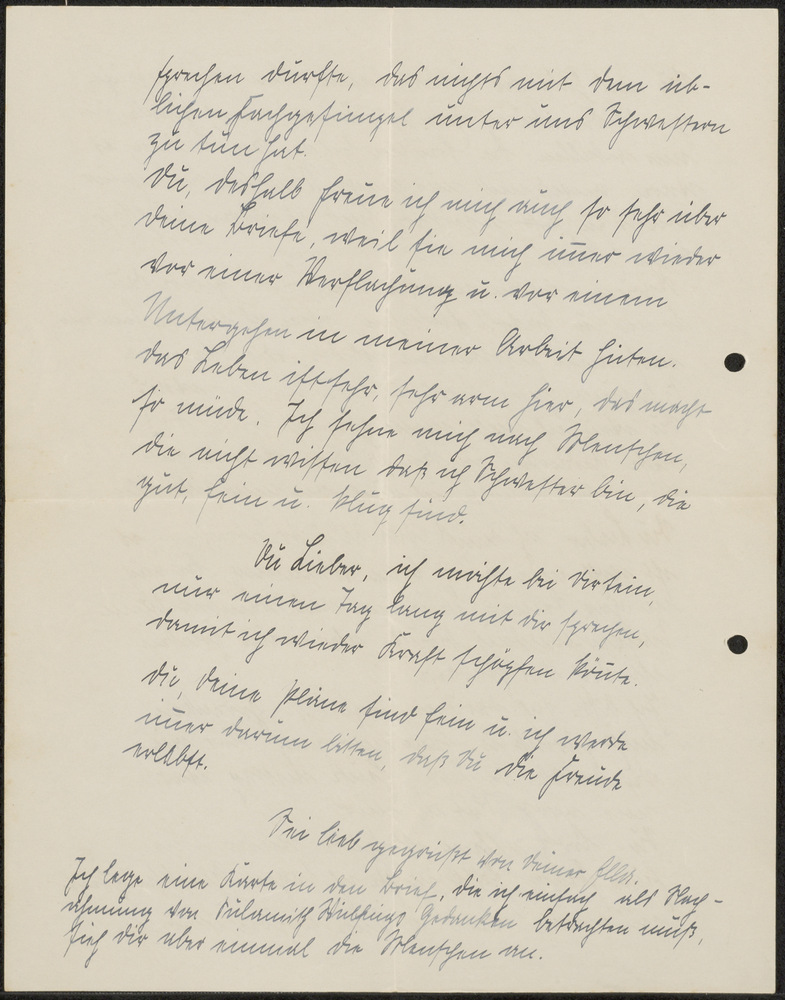 sprechen durfte, das nichts mit dem üb-
lichen Fachgesimpel unter uns Schwestern
zu tun hat.
Du, deshalb freue ich mich auch so sehr über
deine Briefe, weil sie mich im̅er wieder
vor einer Verflachung u. vor einem
Untergehen in meiner Arbeit hüten.
Das Leben ist sehr, sehr arm hier, das macht
so müde. Ich sehne mich nach Menschen,
die nicht wissen daß ich Schwester bin, die
gut, fein u. klug sind.
Du Lieber, ich möchte bei Dir sein,
nur einen Tag lang mit dir sprechen,
damit ich wieder Kraft schöpfen kön̅te.
Du, Deine Pläne sind fein u. ich werde
im̅er darum bitten, daß Du die Freude
erlebst.
Sei lieb gegrüßt von Deiner Ella.
Ich lege eine Karte in den Brief, die ich einfach als Nach-
ahmung von Sulamith Wülfings Gedanken betrachten muß,
sieh dir aber einmal die Menschen an.